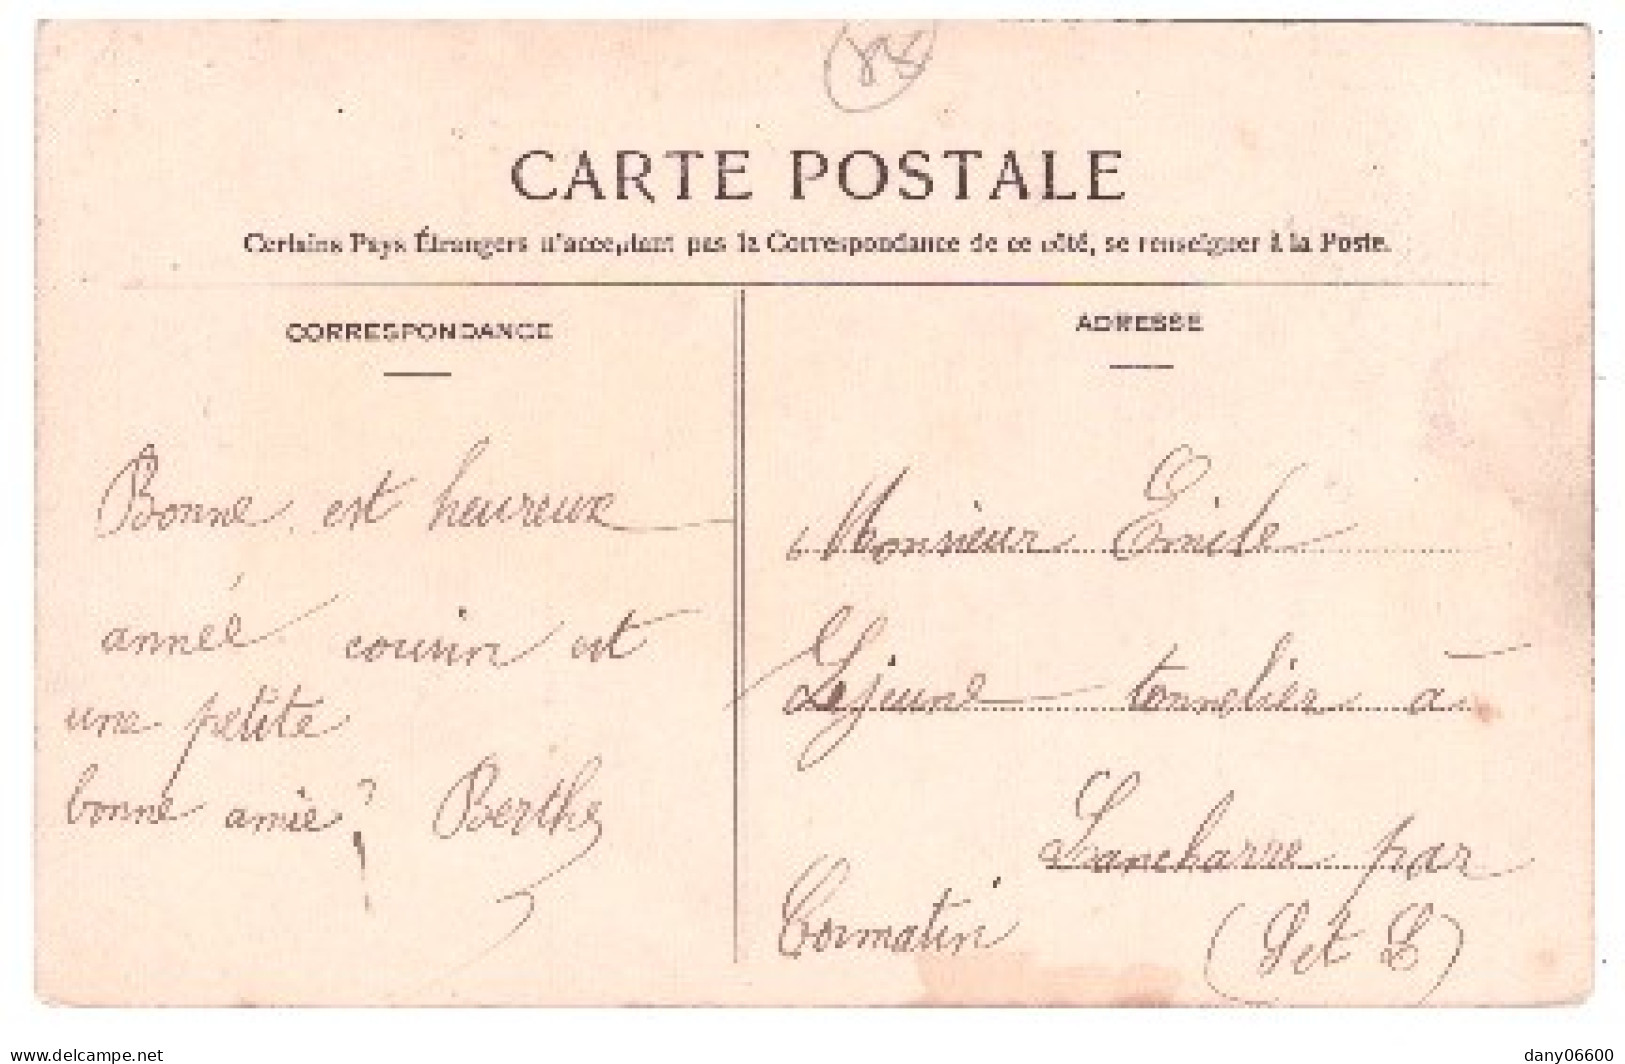 CARTE POSTALE
Certains Pays Étrangers n'acceptant pas la Correspondance de ce côté, se renseigner à la Poste.
CORRESPONDANCE
Bonne est heureuse
année cousin est
une petite
bonne amie ? Berthe
ADRESSE
Monsieur Emile
Lejeune tonnelier à
Lancharre par
Cormatin (S et L)
delcampe.net
dany06600